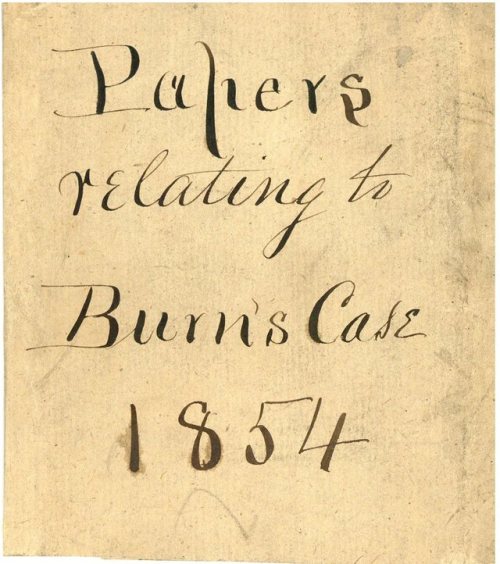 Papers
relating to
Burn's Case
1854